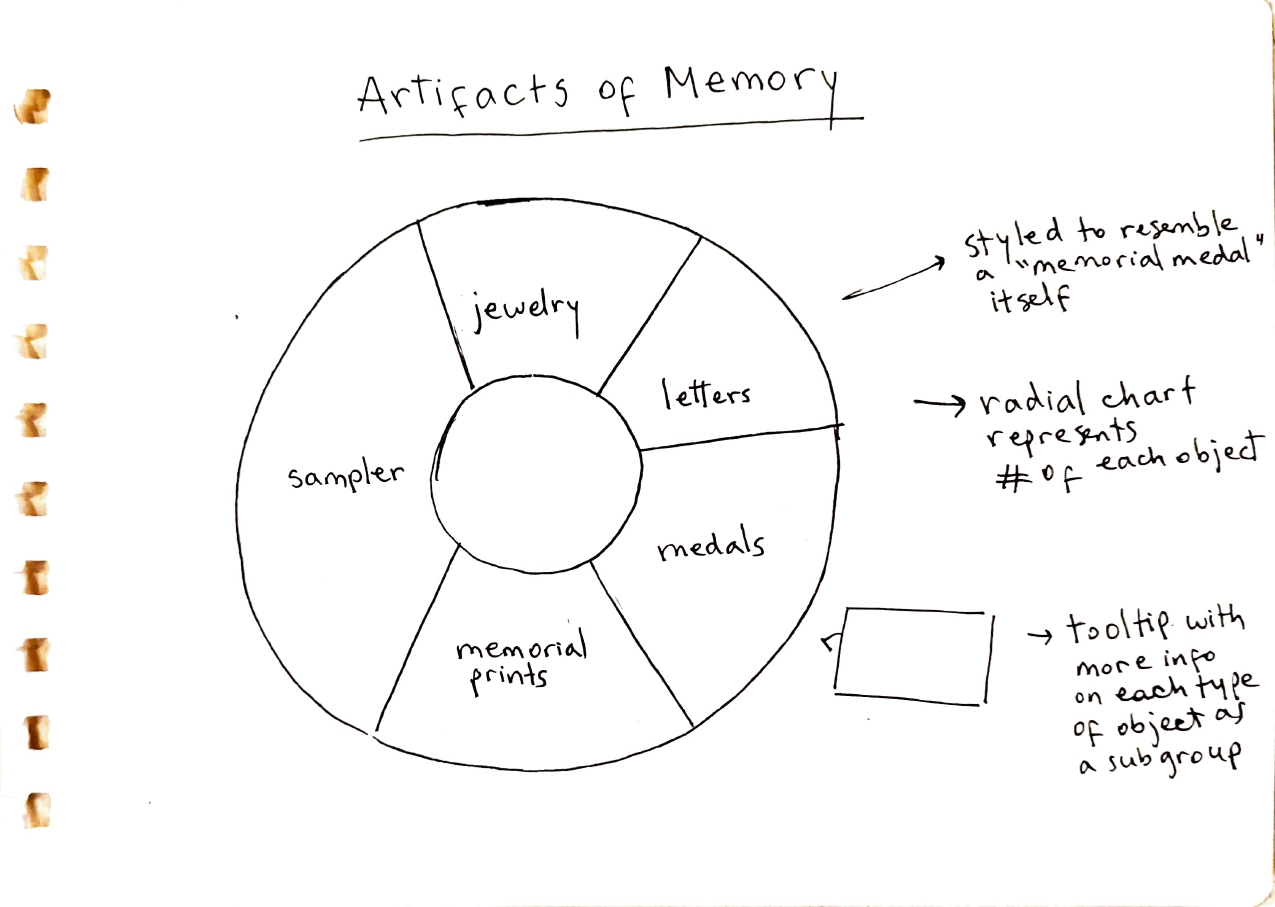 Artifacts of Memory
jewelry
letters
sampler
medals
memorial
prints
→ styled to resemble
a "memorial medal"
itself
→ radial chart
represents
# of each object
→ tooltip with
more info
on each type
of object as
a subgroup